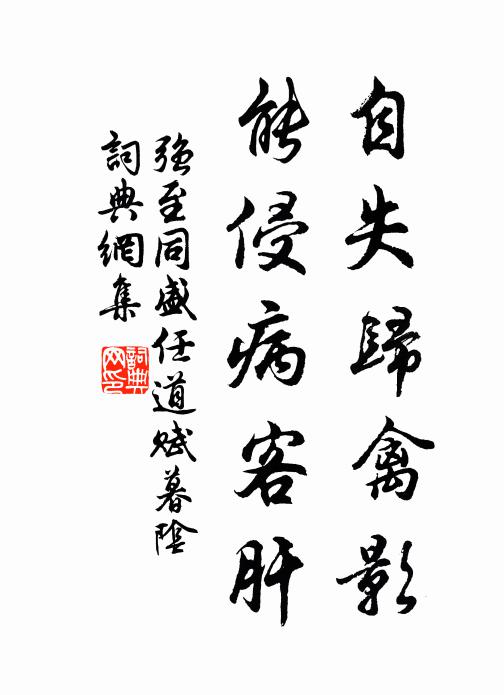 自失歸禽影
能侵病客肝
強至同盛任道賦暮陰
詞典網集
詞典网印